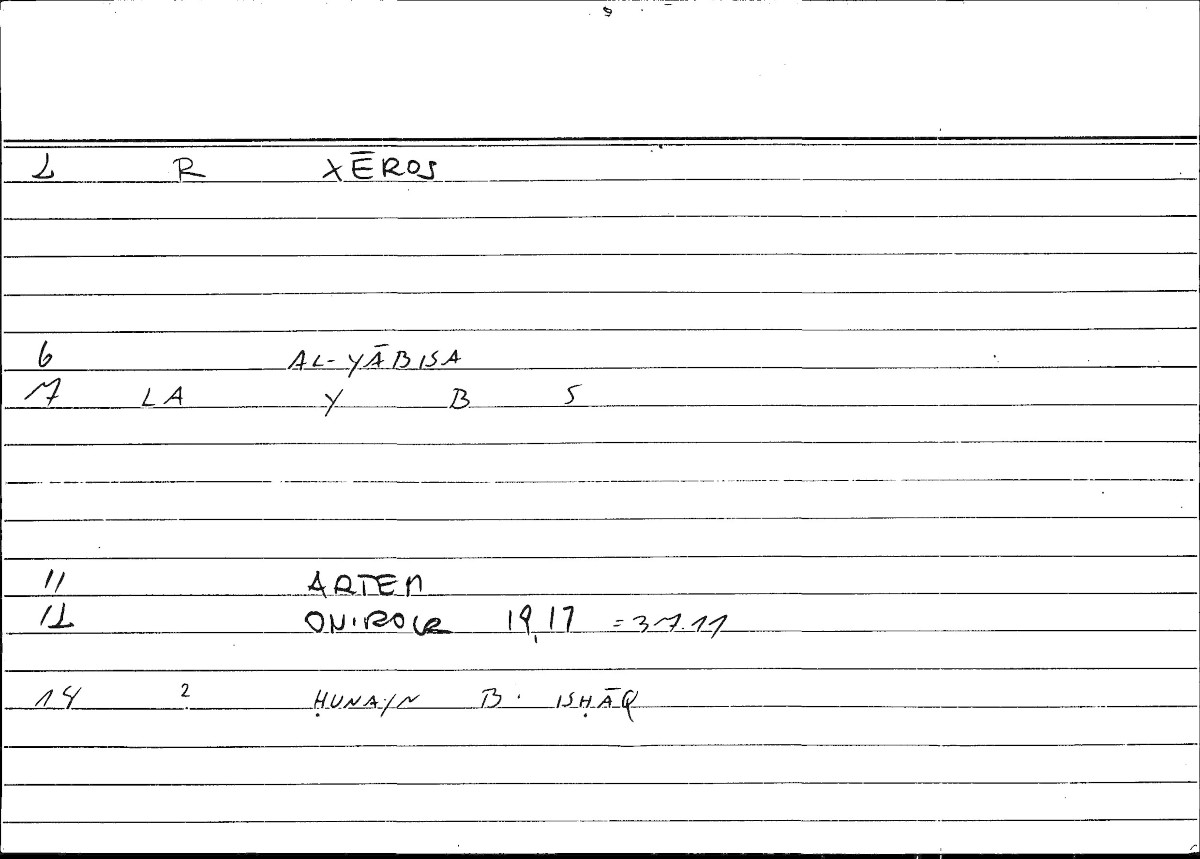 2 R XĒROS
6 AL-YĀBISA
7 LA Y B S
11 ARTEM
12 ONIROCR 19,17 = 37.11
14 2 ḤUNAYN B. ISḤĀQ